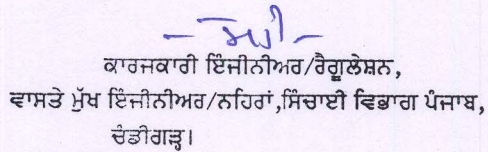 ਕਾਰਜਕਾਰੀ ਇੰਜੀਨੀਅਰ/ਰੈਗੂਲੇਸ਼ਨ,
ਵਾਸਤੇ ਮੁੱਖ ਇੰਜੀਨੀਅਰ/ਨਹਿਰਾਂ,ਸਿੰਚਾਈ ਵਿਭਾਗ ਪੰਜਾਬ,
ਚੰਡੀਗੜ੍ਹ।